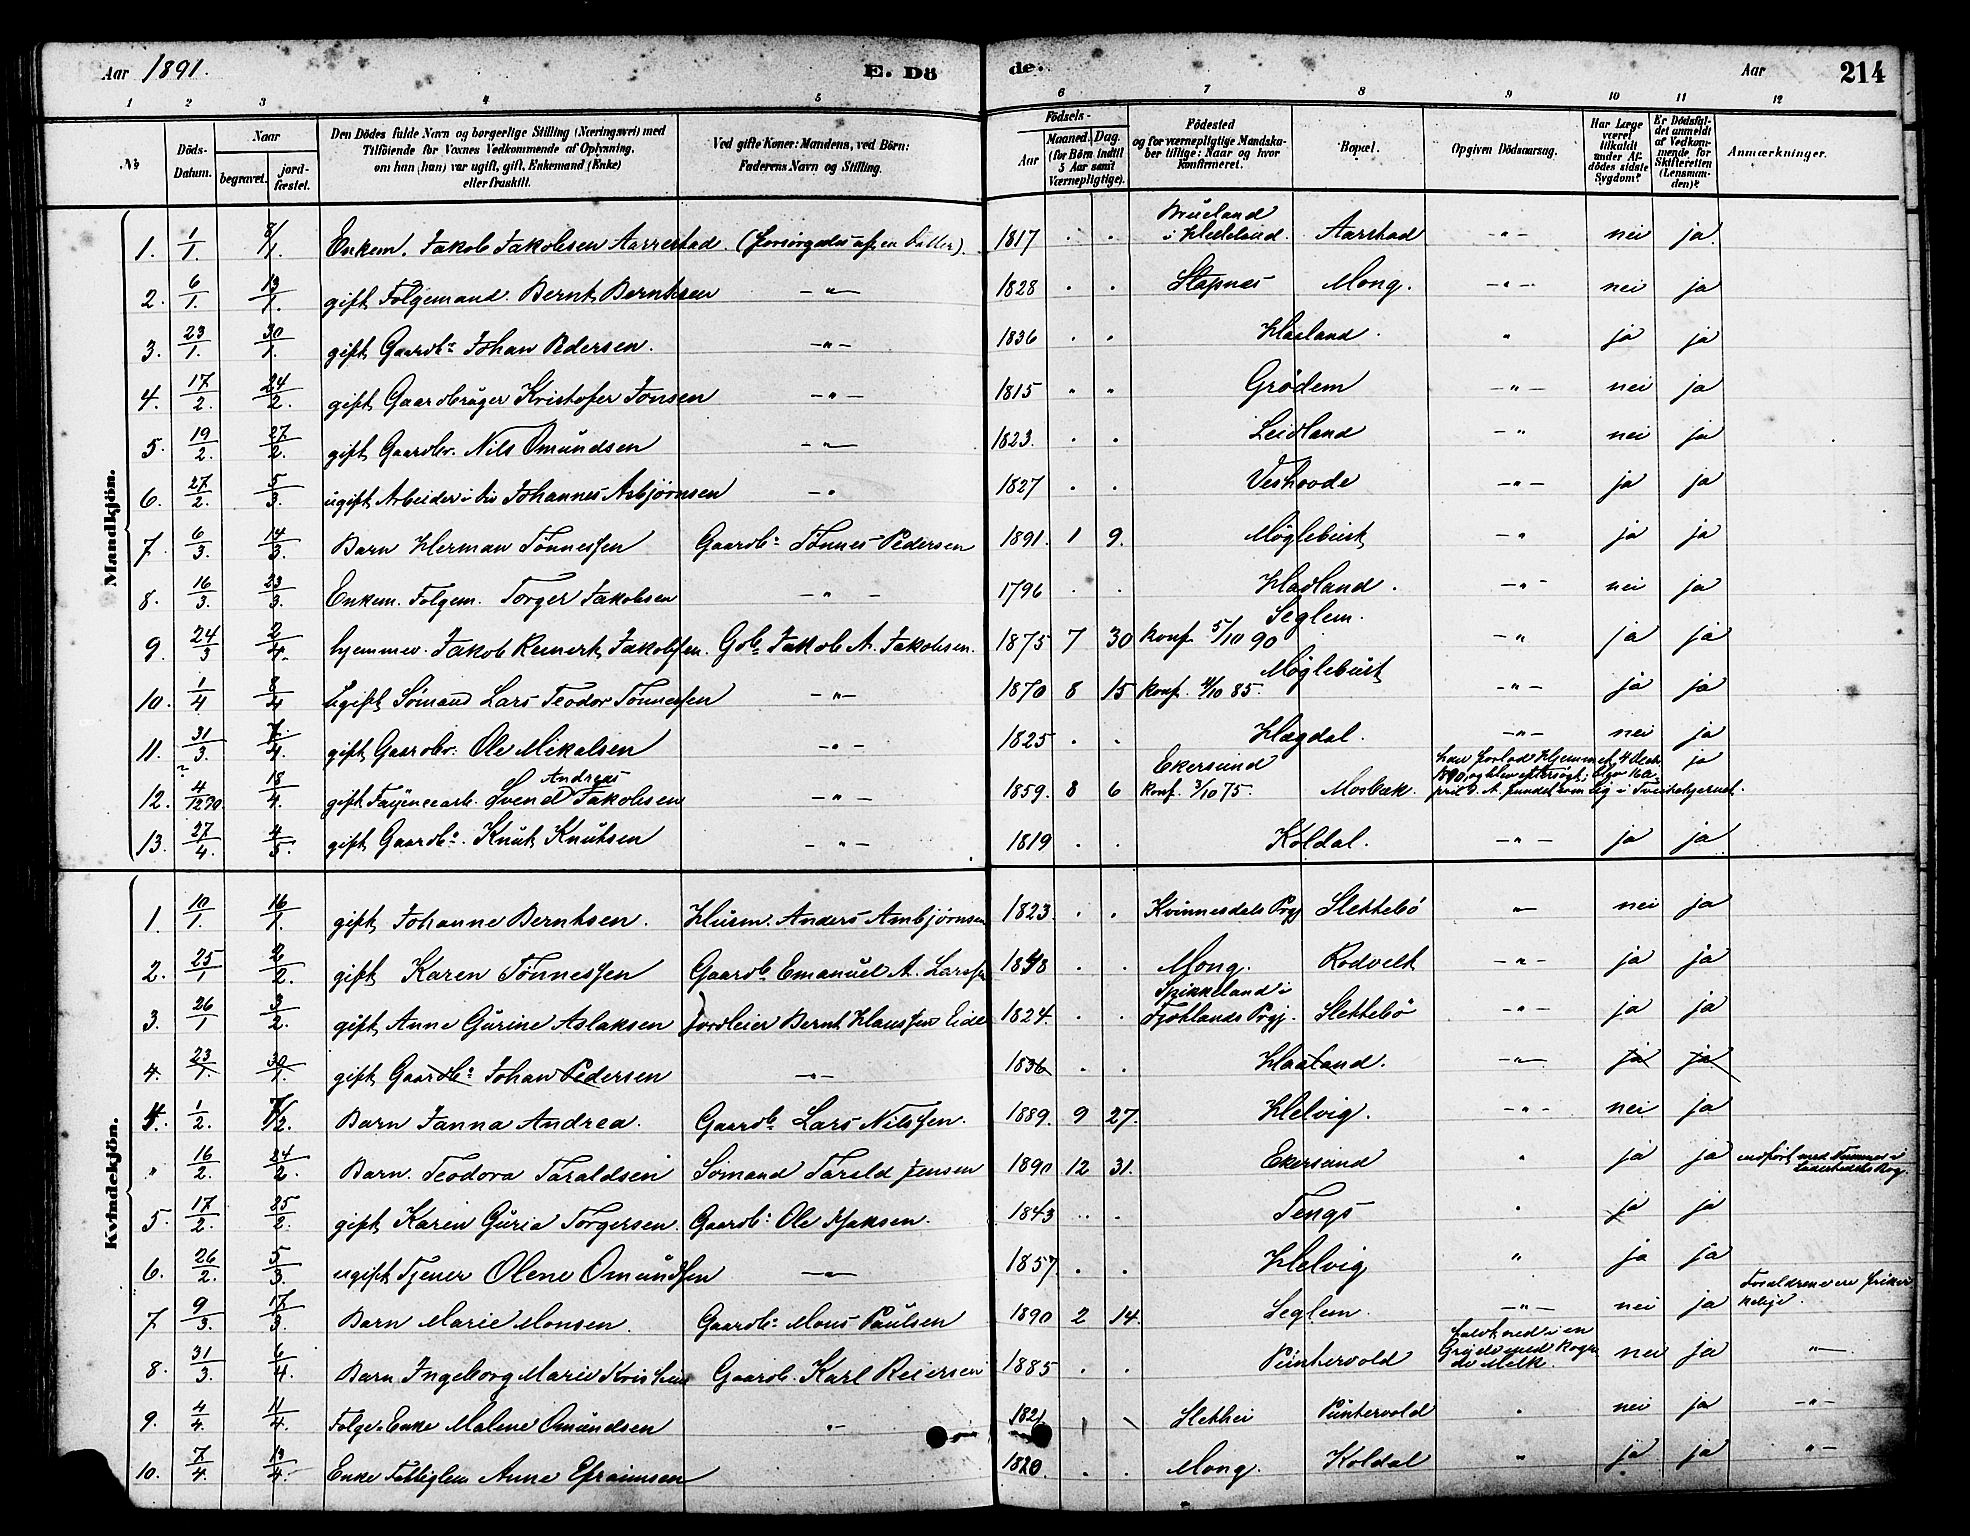 Aar 1891. E. Dö de. Aar 214
1 2 3 4 5 6 7 8 9 10 11 12
No
Döds-Datum.
Naar
begravet.
jord-fæstet.
Den Dödes fulde Navn og borgerlige Stilling (Næringsvei) med
Tilföiende for Voxnes Vedkommende af Oplysning,
om han (hun) var ugift, gift, Enkemand (Enke)
eller fraskilt.
Ved gifte Koner: Mandens, ved Börn:
Faderens Navn og Stilling.
Födsels-
Aar
Maaned. Dag.
(for Börn indtil
5 Aar samt
Værnepligtige).
Födested
og for værnepligtige Mandska-
ber tillige: Naar og hvor
konfirmeret.
Bopæl.
Opgiven Dödsaarsag.
Har Læge
været
tilkaldt
under Af-
dödes sidste
Sygdom?
Er Dödsfal-
det anmeldt
af Vedkom-
mende for
Skifteretten
(Lensman-
den)?
Anmærkninger.
Mandkjön.
1. 1/1. 8/1. Enkem. Jakob Jakobsen Aarrestad (forsørgedes af en Datter). 1817 . . i Helleland. Aarstad -"- nei ja.
2. 6/1. 13/1. gift Folgemand. Bernt Berntsen -"- 1828 . . Stapnes Mong. -"- nei ja
3. 23/1. 30/1. gift Gaardb: Johan Pedersen. -"- 1836 . . Haaland. " ja ja
4. 17/2. 24/2. gift Gaardbruger Kristofer Jonsen -"- 1815 " " Grödem -"- nei ja
5. 19/2. 27/2. gift Gaardbr. Nils Omundsen -"- 1823. . . Leidland -"- nei ja
6. 27/2. 5/3. ugift Arbeider Johannes Asbjørnsen -" 1827 . . Veshovde -"- ja ja
7. 6/3. 14/3. Barn Herman Tønnessen Gaardb: Tønnes Pedersen 1891. 1 9. Møglebust -" ja ja
8. 16/3. 23/3. Enkem. Folgem. Torger Jakobsen -"- 1796 . . Hadland. -"- nei ja
9. 24/3 2/4. hjemmev. Jakob Reinert Jakobsen. Gb: Jakob A. Jakobsen. 1875 7 30 Seglem. konf. 5/10 90 -" ja ja
10. 1/4 8/4 Ugift Sømand Lars Teodor Tønnessen -"- 1870 8 15 Møglebust konf. 4/10 85. -"- ja ja
11. 31/3. 7/4. gift Gaardbr. Ole Mikalsen -"- 1825 . . Hægdal. -"- nei ja
12. ? 4/12 90. 18/4. gift Fayencearb. Svend Andreas Jakobsen -"- 1859. 8 6 Ekersund konf. 3/10 75. Mosbæk. han forlod Hjemmet 4 Decbr 1890 og blev eftersøgt; blev 14 April d. A. fundet som Lig i Tveitetjernet. ja
13. 27/4. 4/5. gift Gaardb: Knut Knutsen -"- 1819 . . Koldal. -"- ja ja
Kvindekjön.
1. 10/1. 16/1. gift Johanne Berntsen. Husm. Anders Ambjørnsen 1823. . . Kvinnesdals Prgj Slettebø " nei ja
2. 25/1 2/2. gift Karen Tønnessen Gaardb: Emanuel A. Larssen 1848 . . Mong. Rodvelt -"- ja ja
3. 26/1 3/2. gift Anne Gurine Aslaksen Jordleier Bernt Klaussen Eide 1824. . . Spikkeland i Fjotlands Prgj. Slettebø -"- ja ja
4. 23/1. 30/1. gift Gaardb: Johan Pedersen -"- 1836 . . Haaland. -"- ja ja
4. 1/2. 7/2. Barn Janna Andrea. Gaardb. Lars Nilssen. 1889. 9 27. Helvig. -"- nei ja
" 16/2. 24/2. Barn. Teodora Taraldsen Sømand Tarald Jensen 1890 12 31. Ekersund " ja ja
5. 17/2. 25/2. gift Karen Guria Torgersen. Gaardb: Ole Isaksen. 1843 . . Tengs " ja ja
6. 26/2. 5/3. ugift Tjener Olene Omundsen -"- 1857. . . Helvig " ja ja
7. 9/3. 17/3. Barn Marie Monsen. Gaardb: Mons Paulsen 1890 2 14. Seglem. -"- nei ja Forældrene ere
8. 31/3. 6/4. Barn Ingeborg Marie Gaardb. Karl Reiersen 1885 . . Puntervold faldt ned i en Gryde med kogende Melk nei ja "
9. 4/4. 11/4. Folge-Enke Malene Omundsen " 1821 Slettei Puntervold " nei ja -"-
10. 7/4. 13/4. Enke Fattiglem Anne Efraimsen 1820. . . Mong. Koldal " ja ja "-